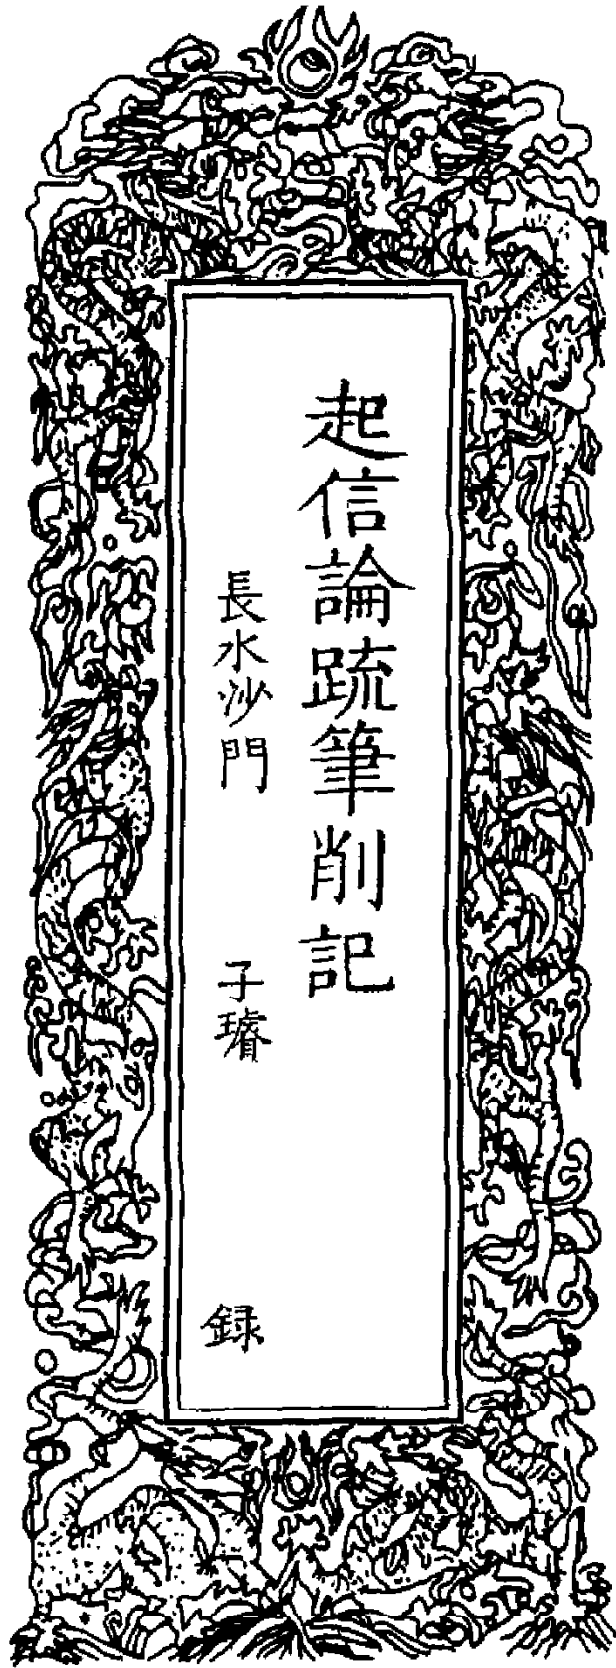 起信論疏筆削記
長水沙門　子璿　録